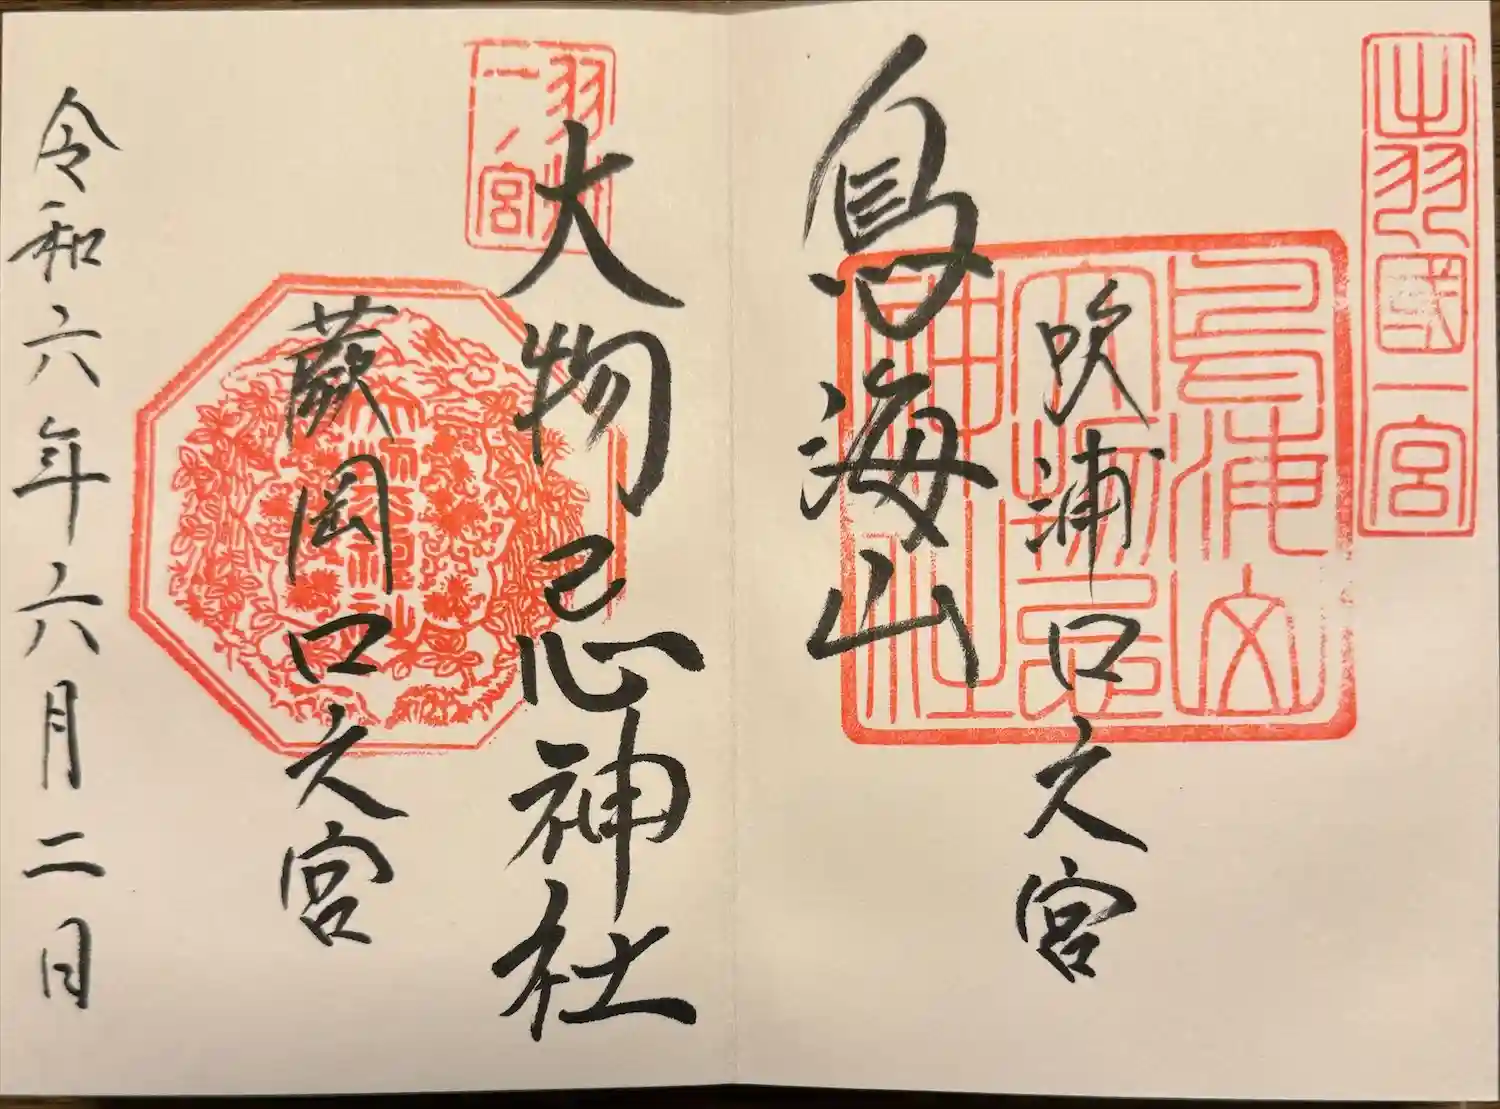 出羽國一宮
鳥海山大物忌神社
吹浦口之宮
鳥海山
羽州一ノ宮
大物忌神社
蕨岡口之宮
令和六年六月二日